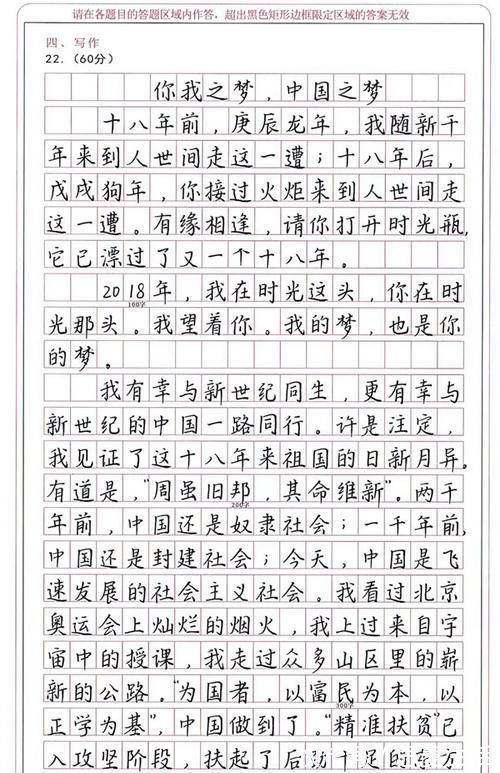 请在各题目的答题区域内作答，超出黑色矩形边框限定区域的答案无效
四、写作
22.（60分）
你我之梦，中国之梦
十八年前，庚辰龙年，我随新千
年来到人世间走这一遭；十八年后，
戊戌狗年，你接过火炬来到人世间走
这一遭。有缘相逢，请你打开时光瓶，
它已漂过了又一个十八年。
2018年，我在时光这头，你在时
100字
光那头。我望着你。我的梦，也是你
的梦。
我有幸与新世纪同生，更有幸与
新世纪的中国一路同行。许是注定，
我见证了这十八年来祖国的日新月异。
有道是，“周虽旧邦，其命维新”。两千
200字
年前，中国还是奴隶社会；一千年前，
中国还是封建社会；今天，中国是飞
速发展的社会主义社会。我看过北京
奥运会上灿烂的烟火，我上过来自宇
宙中的授课，我走过众多山区里的崭
新的公路。“为国者，以富民为本，以
300字
正学为基”，中国做到了。“精准扶贫”已
入攻坚阶段，扶起了后劲十足的东方